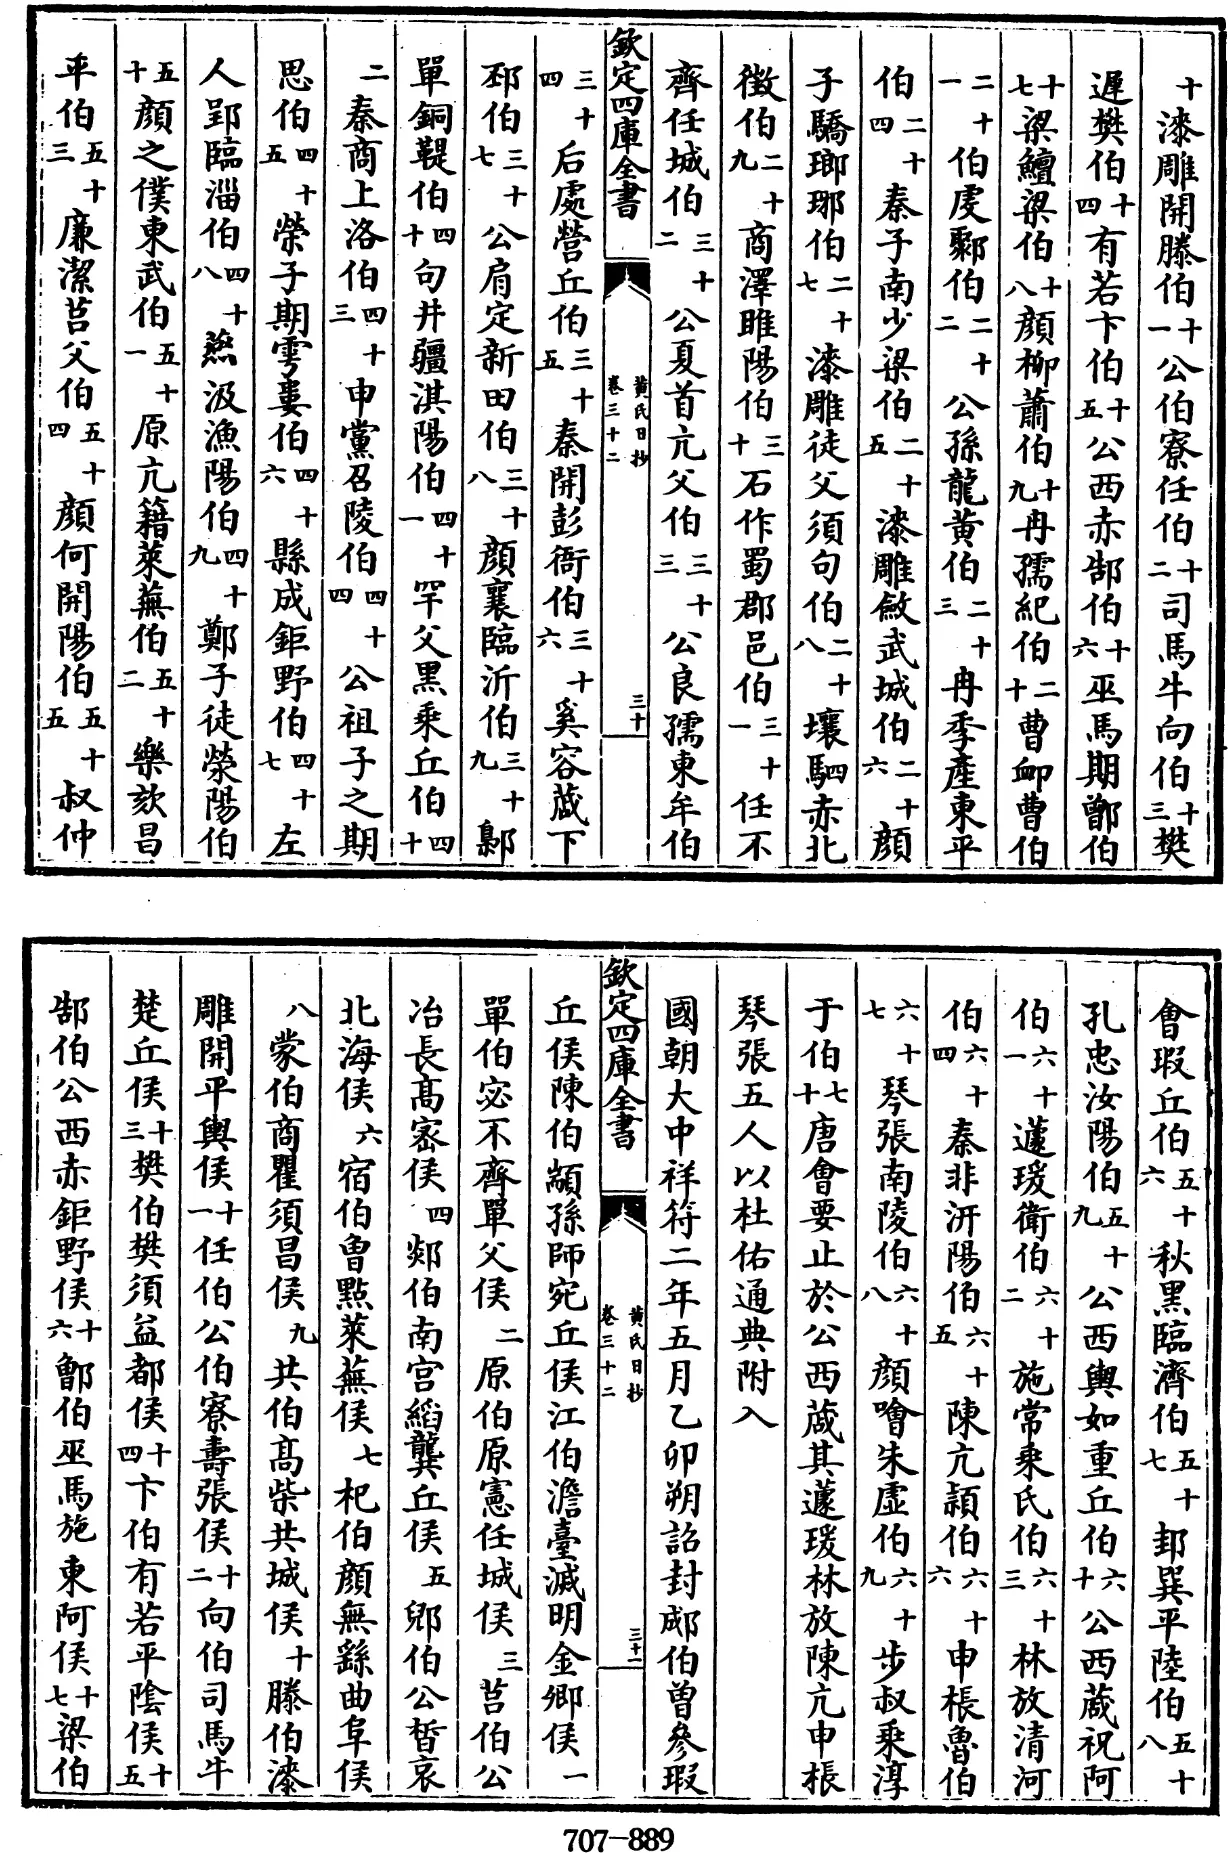 十漆雕開滕伯十一公伯寮任伯十二司馬牛向伯十三樊
遲樊伯十四有若卞伯十五公西赤郜伯十六巫馬期鄫伯
十七梁鱣梁伯十八顔柳蕭伯十九冉孺紀伯二十曹卹曹伯
二十一伯虔鄹伯二十二公孫龍黄伯二十三冉季產東平
伯二十四秦子南少梁伯二十五漆雕斂武城伯二十六顔
子驕瑯琊伯二十七漆雕徒父須句伯二十八壤駟赤北
徵伯二十九商澤睢陽伯三十石作蜀郡邑伯三十一任不
齊任城伯三十二公夏首亢父伯三十三公良孺東牟伯
欽定四庫全書
黄氏日抄
卷三十二
三十
三十四后處營丘伯三十五秦開彭衙伯三十六奚容蒧下
邳伯三十七公肩定新田伯三十八顔襄臨沂伯三十九鄡
單銅鞮伯四十句井疆淇陽伯四十一罕父黒乘丘伯四十
二秦商上洛伯四十三申黨召陵伯四十四公祖子之期
思伯四十五榮子期雩婁伯四十六縣成鉅野伯四十七左
人郢臨淄伯四十八燕汲漁陽伯四十九鄭子徒滎陽伯
五十顔之僕東武伯五十一原亢籍萊蕪伯五十二樂欬昌
平伯五十三廉潔莒父伯五十四顔何開陽伯五十五叔仲
㑹瑕丘伯五十六秋黒臨濟伯五十七邽巽平陸伯五十八
孔忠汝陽伯五十九公西輿如重丘伯六十公西蒧祝阿
伯六十一蘧瑗衛伯六十二施常乘氏伯六十三林放清河
伯六十四秦非汧陽伯六十五陳亢潁伯六十六申棖魯伯
六十七琴張南陵伯六十八顔噲朱虚伯六十九步叔乘淳
于伯七十唐㑹要止於公西蒧其蘧瑗林放陳亢申棖
琴張五人以杜佑通典附入
國朝大中祥符二年五月乙卯朔詔封郕伯曽參瑕
欽定四庫全書
黄氏日抄
卷三十二
三十一
丘侯陳伯顓孫師宛丘侯江伯澹臺滅明金鄉侯一
單伯宓不齊單父侯二原伯原憲任城侯三莒伯公
冶長髙宻侯四郯伯南宫縚龔丘侯五郳伯公晳哀
北海侯六宿伯曾點萊蕪侯七杞伯顔無繇曲阜侯
八蒙伯商瞿須昌侯九共伯髙柴共城侯十滕伯漆
雕開平輿侯十一任伯公伯寮壽張侯十二向伯司馬牛
楚丘侯十三樊伯樊須益都侯十四卞伯有若平陰侯十五
郜伯公西赤鉅野侯十六鄫伯巫馬施東阿侯十七梁伯
707-889